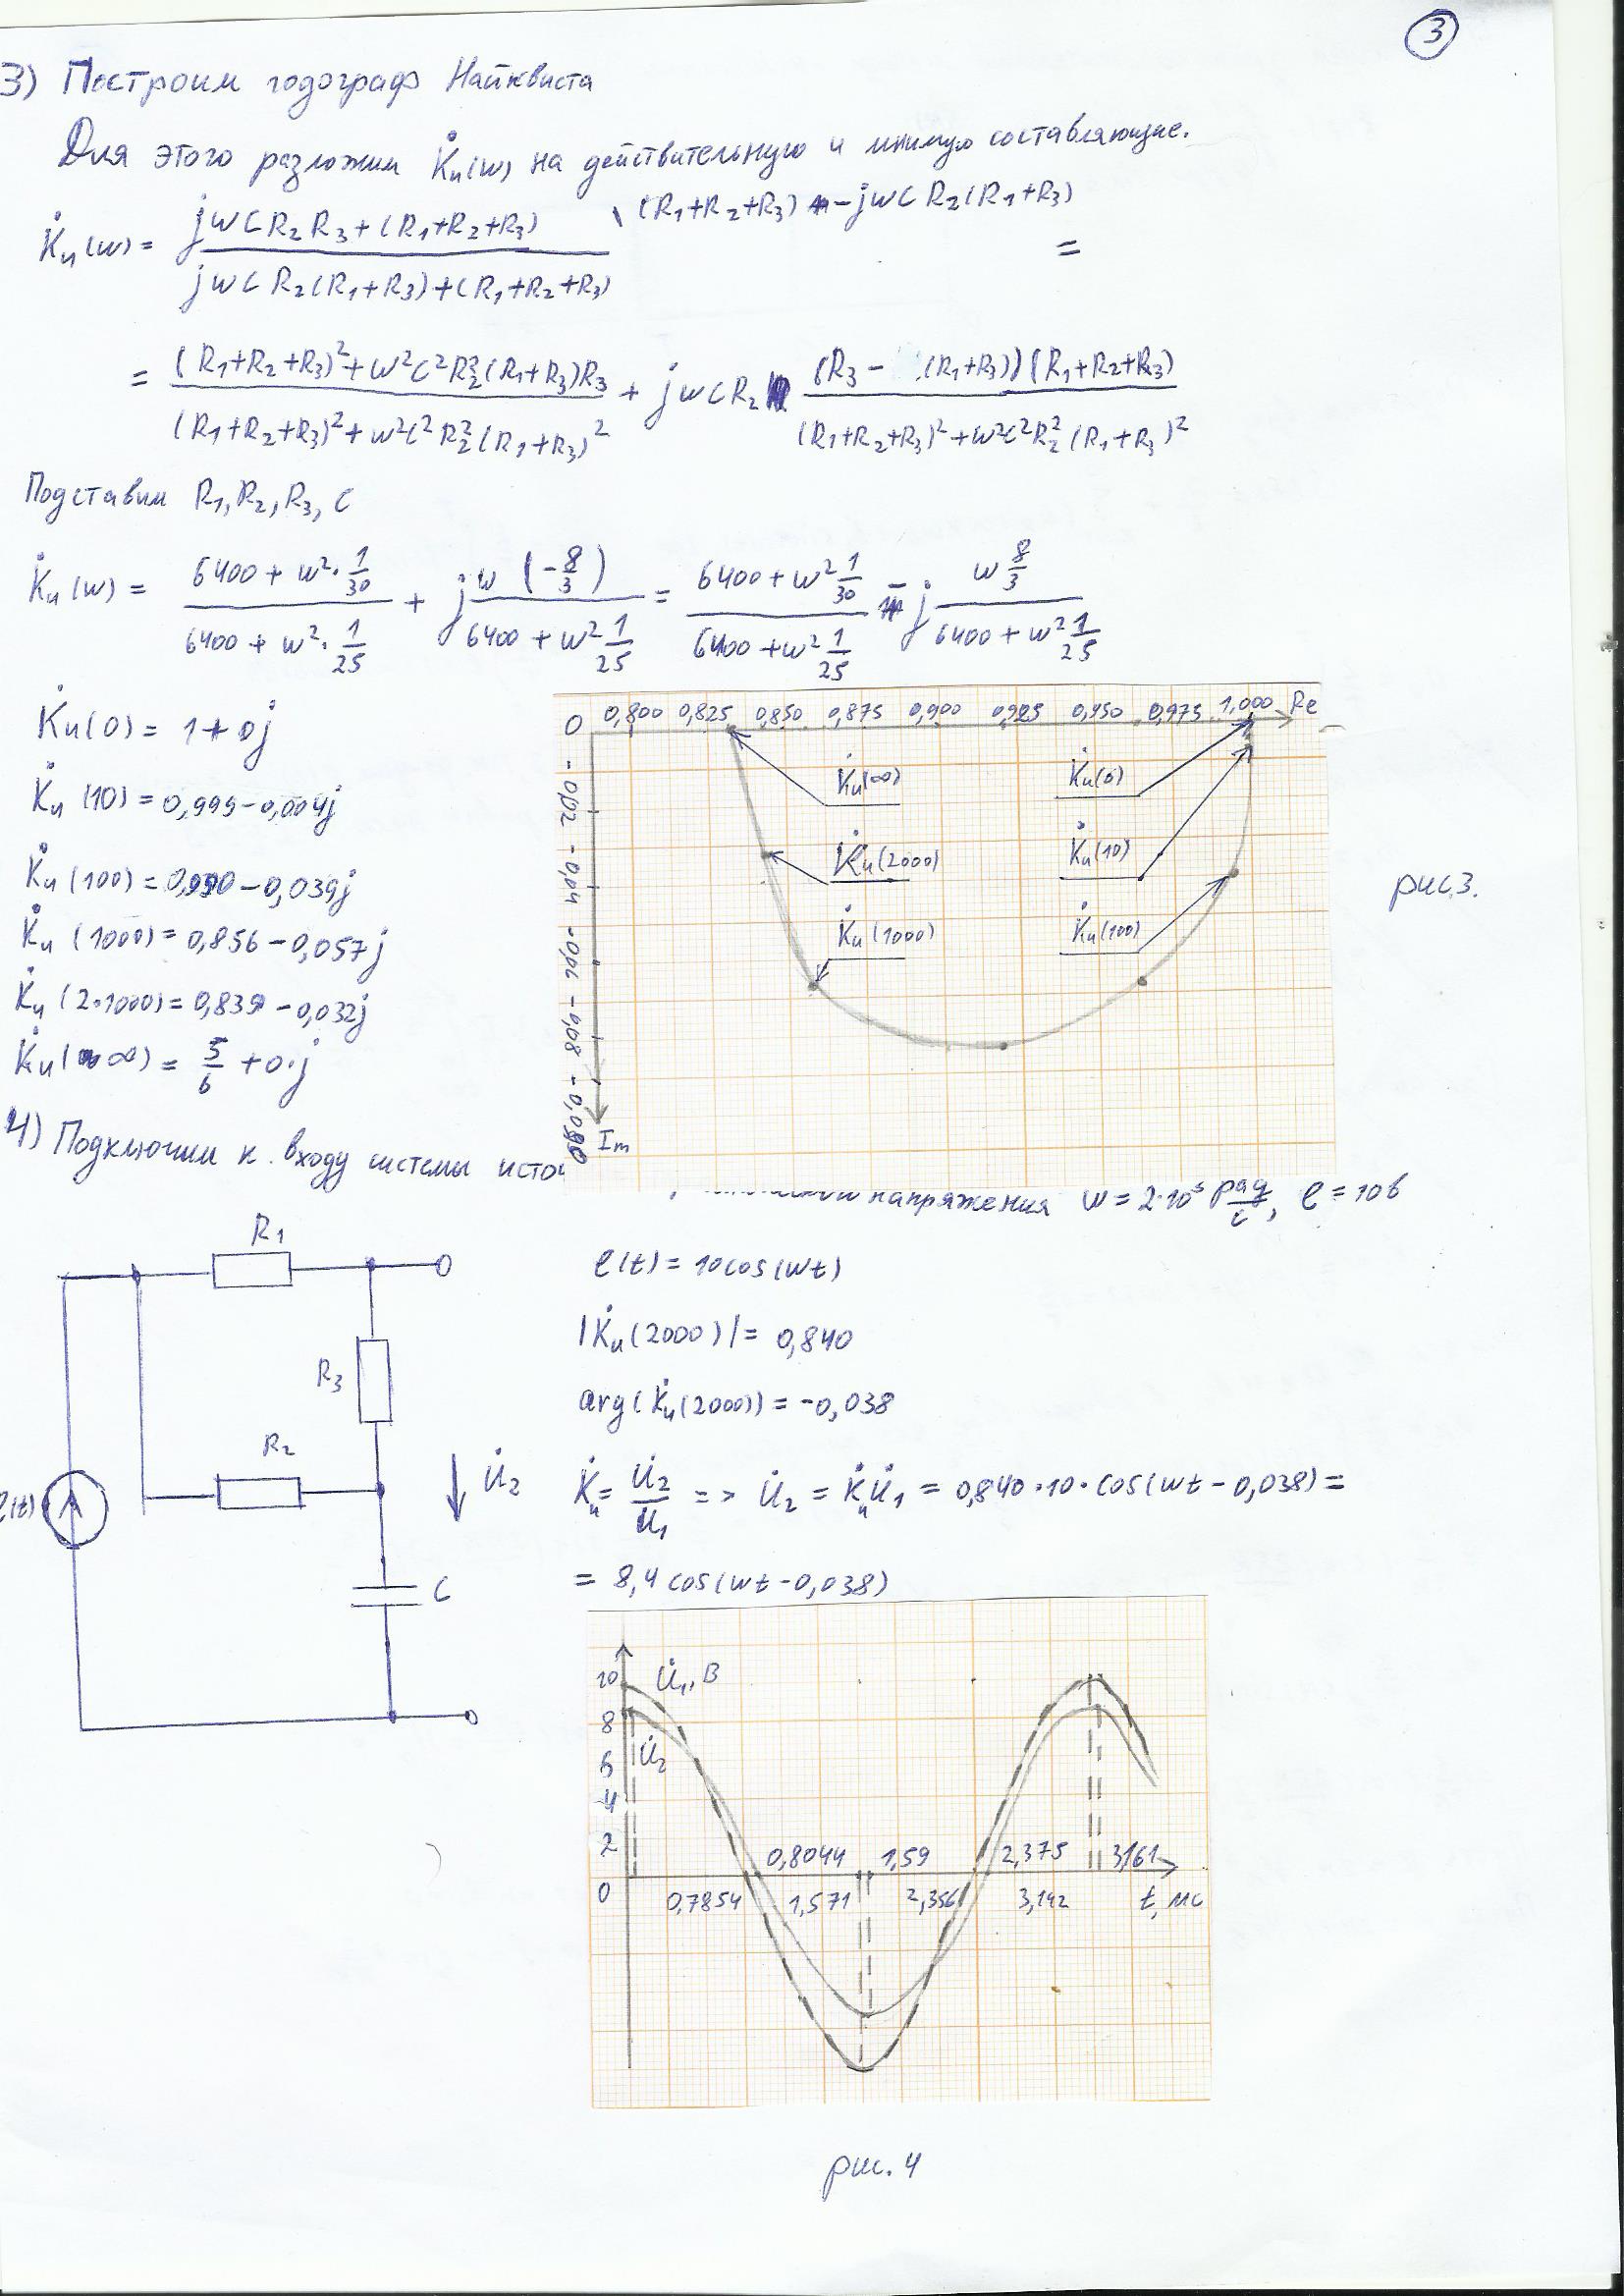 3
3) Построим годограф Найквиста
Для этого разложим K̇и(w) на действительную и мнимую составляющие.
K̇и(w) = (jwCR₂R₃+(R₁+R₂+R₃)) / (jwCR₂(R₁+R₃)+(R₁+R₂+R₃)) \ (R₁+R₂+R₃) - jwCR₂(R₁+R₃) =
= ((R₁+R₂+R₃)²+w²C²R₂²(R₁+R₃)R₃) / ((R₁+R₂+R₃)²+w²C²R₂²(R₁+R₃)²) + jwCR₂ ((R₃-(R₁+R₃))(R₁+R₂+R₃)) / ((R₁+R₂+R₃)²+w²C²R₂²(R₁+R₃)²)
Подставим R₁, R₂, R₃, C
K̇и(w) = (6400+w²·1/30) / (6400+w²·1/25) + j w(-8/3) / (6400+w² 1/25) = (6400+w² 1/30) / (6400+w² 1/25) - j (w 8/3) / (6400+w² 1/25)
K̇и(0) = 1+0j
K̇и(10) = 0,999-0,004j
K̇и(100) = 0,990-0,039j
K̇и(1000) = 0,856-0,057j
K̇и(2·1000) = 0,839-0,032j
K̇и(∞) = 5/6 + 0·j
0 0,800 0,825 0,850 0,875 0,900 0,925 0,950 0,975 1,000 Re
-0,02 -0,04 -0,06 -0,08 -0,080
Im
K̇и(∞) K̇и(0)
K̇и(2000) K̇и(10)
K̇и(1000) K̇и(100)
рис3.
4) Подключим к входу системы напряжения w = 2·10³ рад/с, e = 10в
R₁
R₃
R₂
e(t)
U̇₂
C
e(t) = 10cos(wt)
|K̇и(2000)| = 0,840
arg(K̇и(2000)) = -0,038
K̇и = U̇₂/U̇₁ => U̇₂ = K̇иU̇₁ = 0,840·10·cos(wt-0,038) =
= 8,4cos(wt-0,038)
10 U̇₁, В
8
U̇₂
6
4
2
0
0,8044 1,59 2,375 3,161
0,7854 1,571 2,356 3,142 t, мс
рис. 4